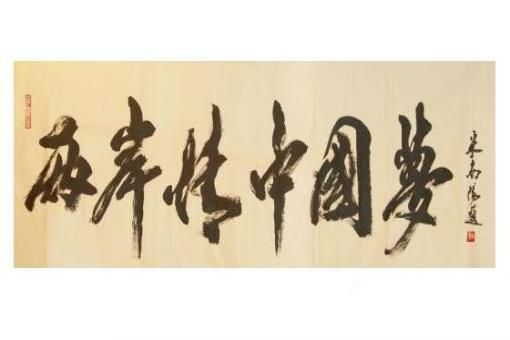 兩岸情中國夢